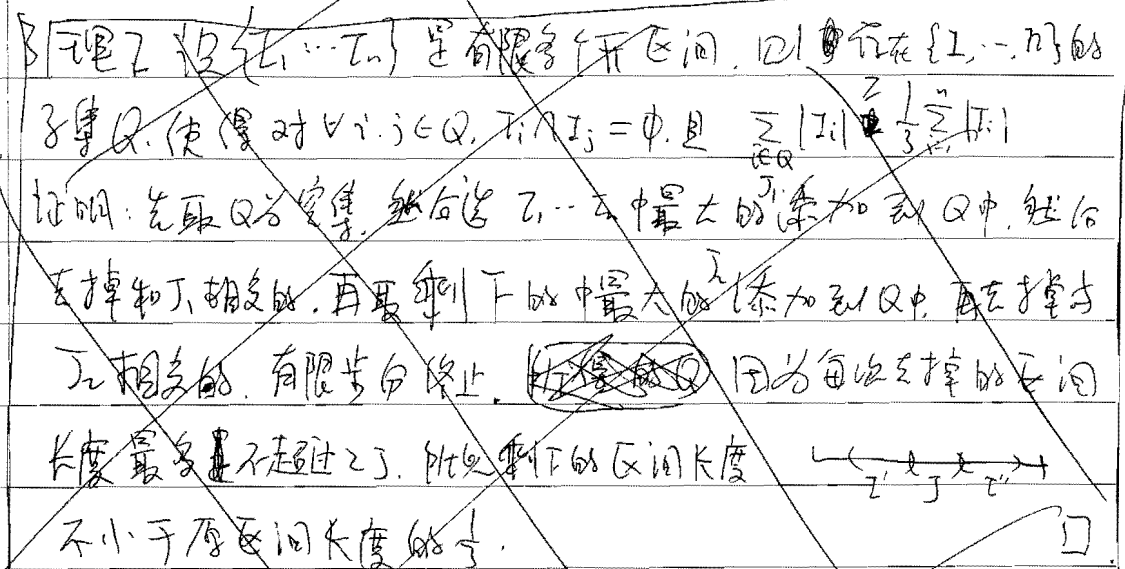 引理2 设{I₁…Iₙ}是有限多个开区间,则存在{1,…,n}的
子集Q,使得对∀i,j∈Q,Iᵢ∩Iⱼ=φ,且 ∑_{i∈Q}|Iᵢ| ≥ 1/3 ∑_{i=1}^{n}|Iᵢ|
证明:先取Q为空集,然后选I₁…Iₙ中最大的J₁添加到Q中,然后
去掉和J₁相交的,再取剩下的中最大的J₂添加到Q中,再去掉与
J₂相交的,有限步后终止.因为每次去掉的区间
长度最多不超过2J,所以剩下的区间长度
I' J I''
不小于原区间长度的1/3.
□